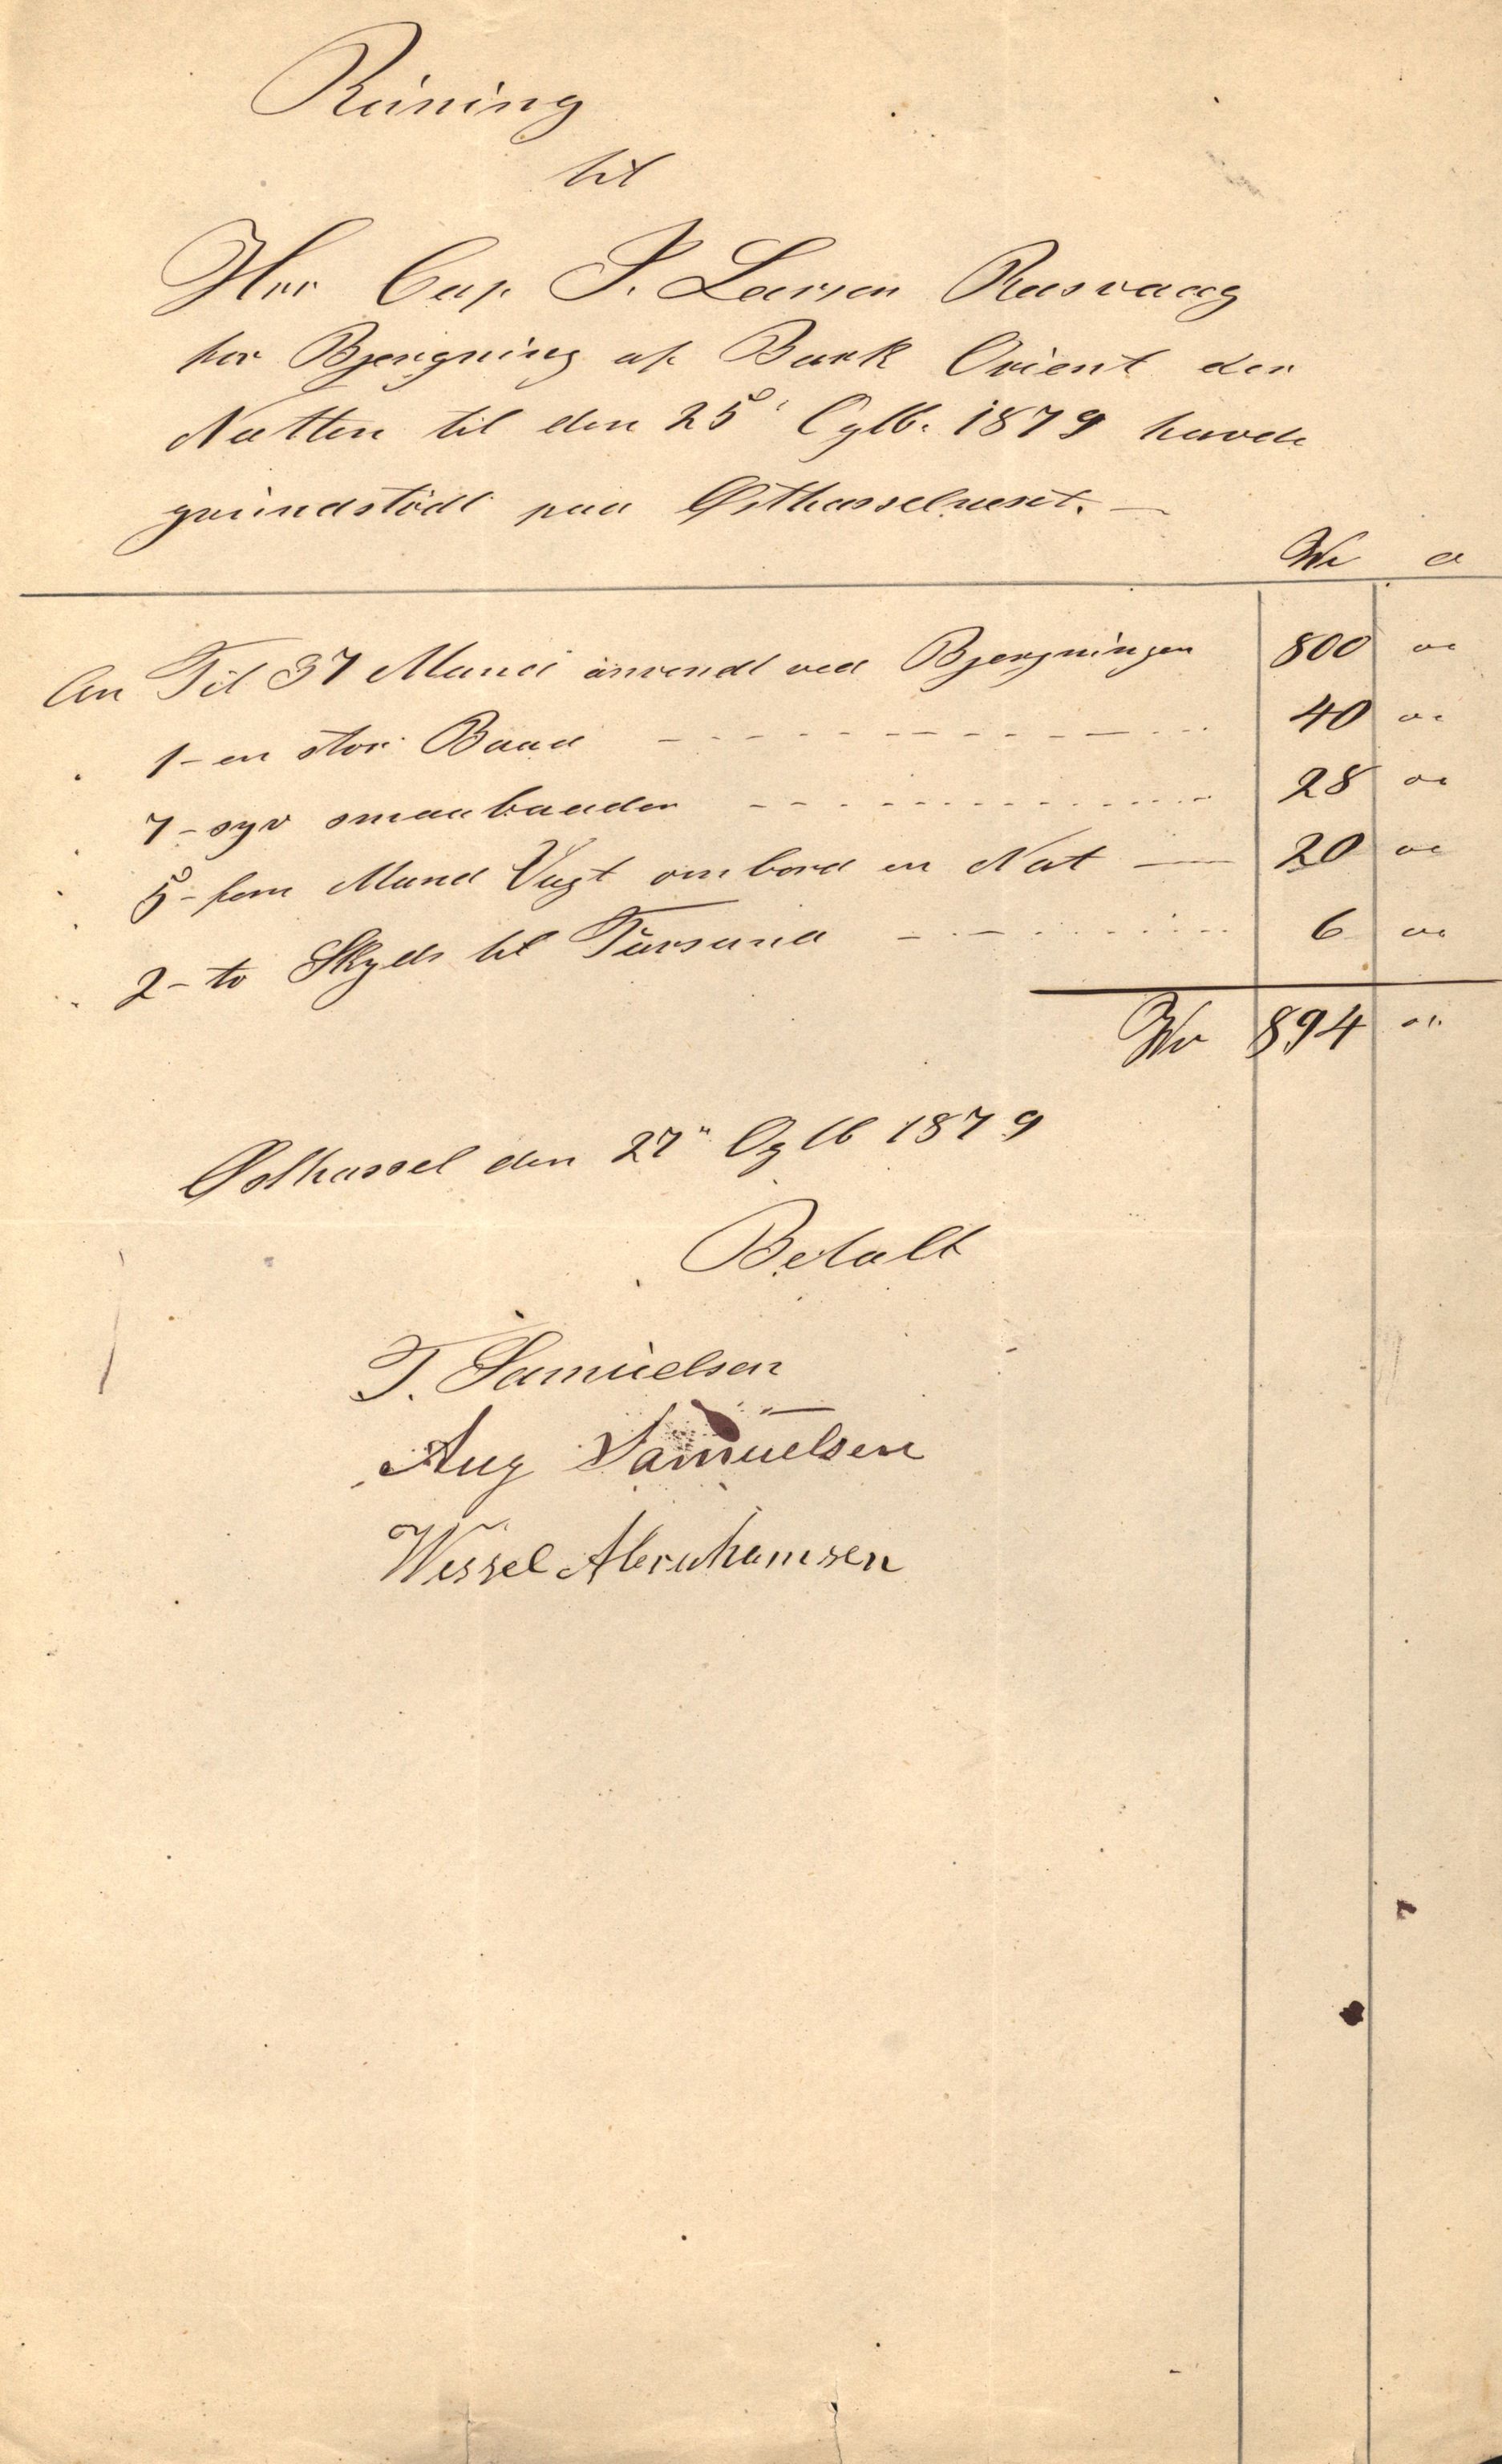 Reining
til
Herr Cap. J. Larsen Rasvaag
for Bjergning af Bark Orient der
Natten til den 25' Octb. 1879 havde
grundstödt paa Østhasselneset. —
Kr ø
An Til 37 Mand anvendt ved Bjergningen 800 00
" 1 - en stor Baad 40 00
" 7 - syv smaabaader 28 00
" 5 - fem Mand Vagt ombord en Nat — 20 00
" 2 - to Skyds til Farsund 6 00
Kr 894 00
Østhassel den 27" Octb 1879
Betalt
T. Samuelsen
Aug Samuelsen
Wessel Abrahamsen